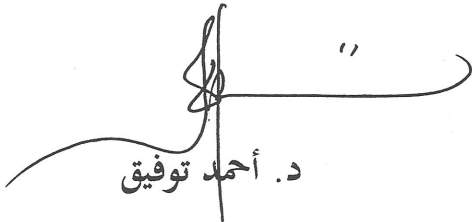 د. أحمد توفيق